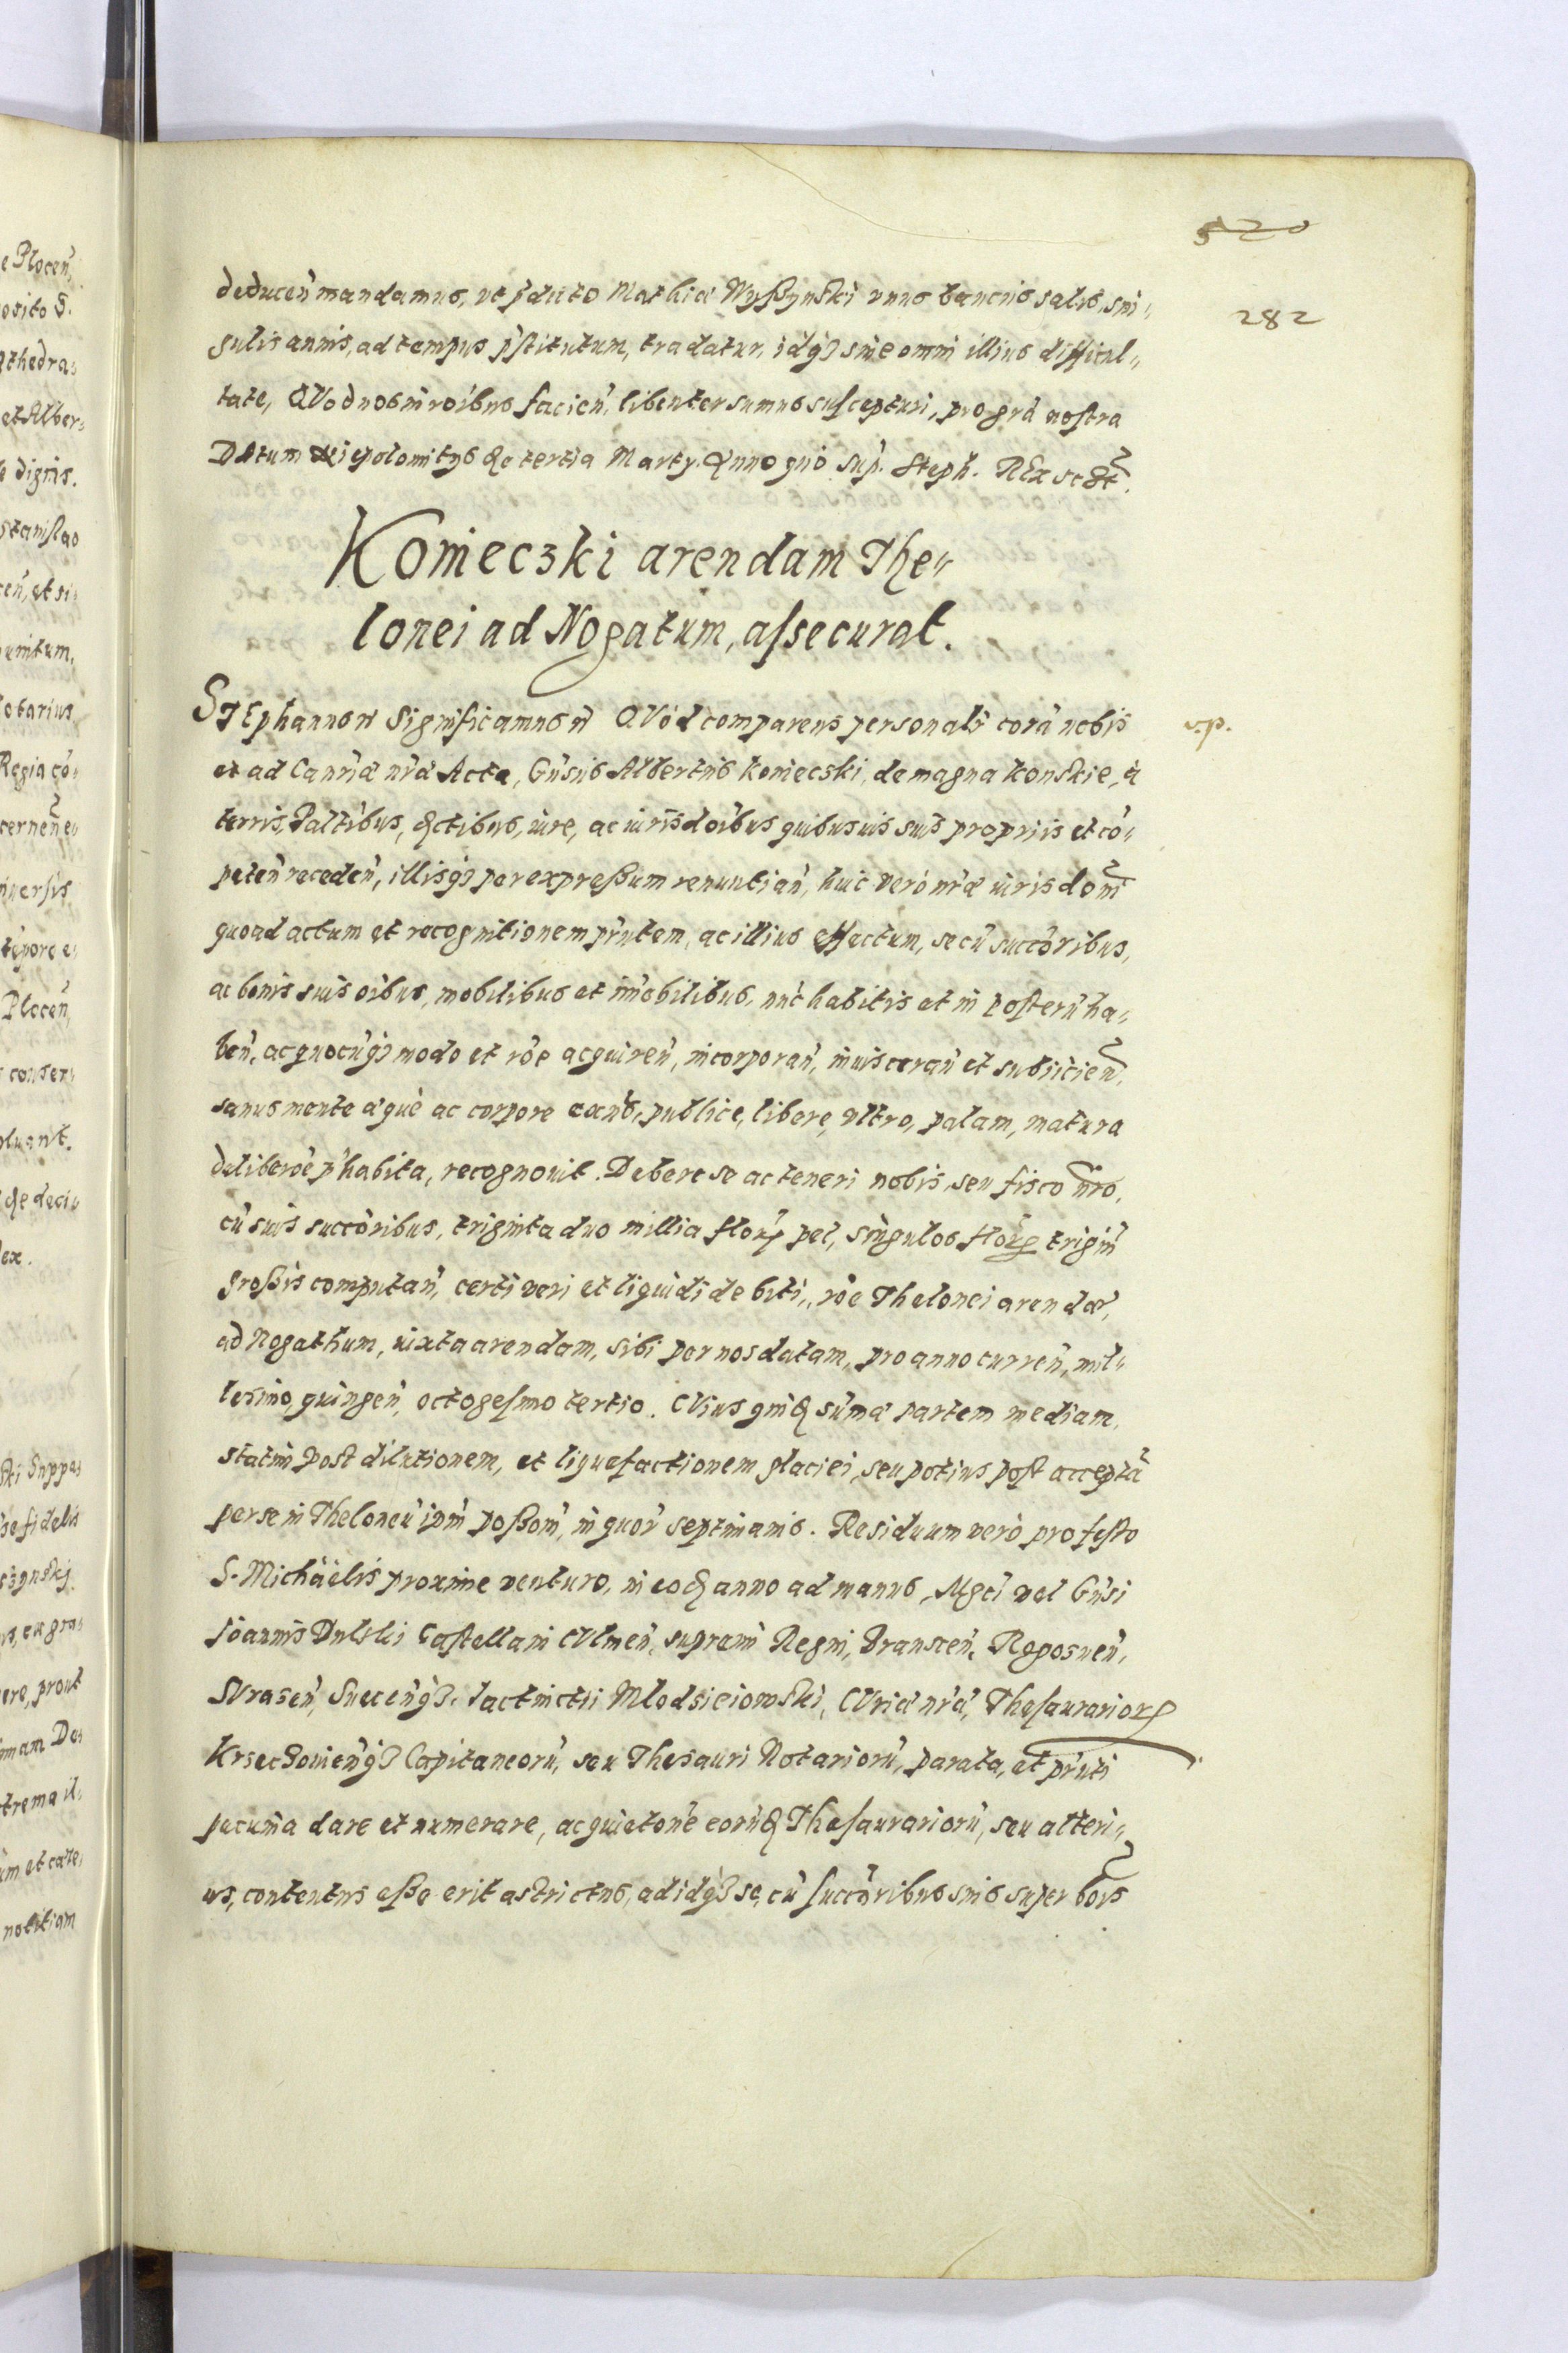 520
282
deducen̄ mandamus, ut p̄dicto Mathiæ Wyßynski unus bancus salis, sin„
gulis annis, ad tempus p̄stitutum, tradatur, idq₃ sine omni illius difficul„
tate, QVod nos in roibus facien̄, libenter sumus suscepturi, pro gr̄a nostra
Datum Niepolomitijs die tertia Martij. Anno quo sup̄. Steph. REx scr̄t.
Konieczki arendam The„
lonei ad Nogatum, assecurat.
STEphannus n̄ Significamus n̄ QVod comparens personalr̄ corā nobis
s.p.
et ad Can̄riæ nr̄æ Acta, Gn̄sus Albertus Koniecski, de magna Konskie, à
terris, Paltibus, dictibus, iure, ac iurisdoībus quibusuis suis propriis et cō„
peten̄ receden̄, illisq₃ per expreßum renuntian̄, huic verò nr̄æ iurisdoni
quoad actum et recognitionem pn̄tem, ac illius effectum, se cū succōribus,
ac bonis suis oībus, mobilibus et īmobilibus, nūc habitis et in posterū ha„
ben̄, ac quocūq₃ modo et rōe acquiren̄, incorporan̄, inuisceran̄ et subijcien̄,
sanus mente æquè ac corpore exn̄s, publice, libere, ultro, palam, matura
deliberōe p̄habita, recognouit. Debere se ac teneri nobis, seu fisco nr̄o,
cū suis succōribus, triginta duo millia flor̄ pol, singulos flor̄ trigin̄
großis computan̄, certi veri et liquidi debiti, rōe Thelonei arendæ,
ad Nogathum, iuxta arendam, sibi per nos datam, pro anno curren̄, mil„
lesimo, quingen̄, octogesimo tertio. CVius quid sūmæ partem mediam,
statim post dilutionem, et liquefactionem glaciei, seu potius post acceptā
per se in Theloneū ip̄m poßom̄, in quor̄ septimanis. Residuum verò pro festo
S. Michäelis proxime venturo, in eod anno ad manus, Mgci vel Gn̄si
Ioannis Dulski Castellani CVlmen̄, supremi Regni, Bransceń, Rogosnen̄,
SVrasen̄, Suecen̄q₃. Iac Mlodsieiowski, CVriæ nr̄æ, Thesaurarior̄
Krsecsouien̄q₃ Capitaneorū, seu Thesauri Notariorū, parata, et pn̄ti
pecunia dare et numerare, ac quietōne eorūd Thesaurariorū, seu alteri„
us, contentus eße erit astrictus, ad idq₃ se, cū succōribus suis super bois